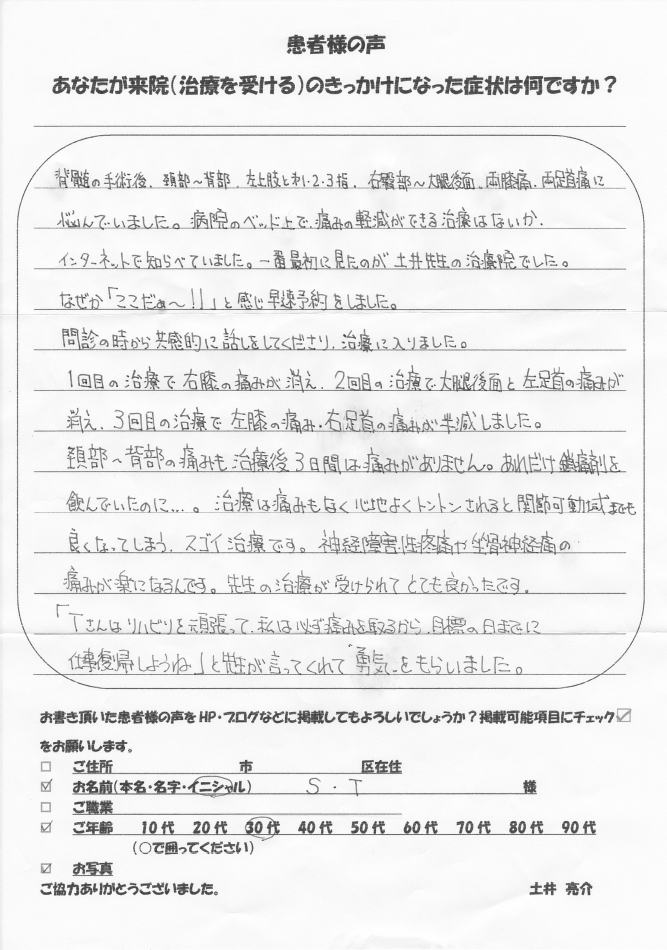 患者様の声
あなたが来院(治療を受ける)のきっかけになった症状は何ですか?
脊髄の手術後、頚部〜背部、左上肢と第1・2・3指、右臀部〜大腿後面、両膝痛、両足首痛に
悩んでいました。病院のベッド上で、痛みの軽減ができる治療はないか、
インターネットで知らべていました。一番最初に見たのが土井先生の治療院でした。
なぜか「ここだぁ〜!!」と感じ早速予約をしました。
問診の時から共感的に話しをしてくださり、治療に入りました。
1回目の治療で右膝の痛みが消え、2回目の治療で大腿後面と左足首の痛みが
消え、3回目の治療で左膝の痛み・右足首の痛みが半減しました。
頚部〜背部の痛みも治療後3日間は痛みがありません。あれだけ鎮痛剤を
飲んでいたのに…。治療は痛みもなく心地よくトントンされると関節可動域までも
良くなってしまう、スゴイ治療です。神経障害性疼痛や坐骨神経痛の
痛みが楽になるんです。先生の治療が受けられてとても良かったです。
「Tさんはリハビリを頑張って、私は必ず痛みを取るから、目標の日までに
仕事復帰しようね」と先生が言ってくれて"勇気"をもらいました。
お書き頂いた患者様の声をHP・ブログなどに掲載してもよろしいでしょうか?掲載可能項目にチェック☑
をお願いします。
□ ご住所 市 区在住
☑ お名前(本名・名字・イニシャル) S・T 様
□ ご職業
☑ ご年齢 10代 20代 30代 40代 50代 60代 70代 80代 90代
(○で囲ってください)
☑ お写真
ご協力ありがとうございました。 土井 亮介